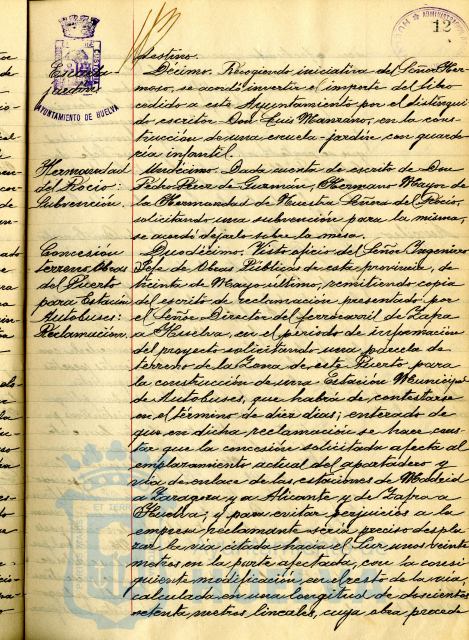 12
AYUNTAMIENTO DE HUELVA
destino.
Escuela-
jardín
Décimo. Recogiendo iniciativa del Señor Her-
moso, se acordó invertir el importe del libro
cedido a este Ayuntamiento por el distingui-
do escritor Don Luis Manzano, en la cons-
trucción de una escuela-jardín con guarde-
ría infantil.
Hermandad
del Rocío:
Subvención.
Undécimo. Dada cuenta de escrito de Don
Pedro Pérez de Guzmán, Hermano Mayor de
la Hermandad de Nuestra Señora del Rocío,
solicitando una subvención para la misma,
se acordó dejarlo sobre la mesa.
Concesión
terreno Obras
del Puerto
para Estación
Autobuses:
Reclamación.
Duodécimo. Visto oficio del Señor Ingeniero
Jefe de Obras Públicas de esta provincia, de
treinta de Mayo último, remitiendo copia
del escrito de reclamación presentado por
el Señor Director del ferrocarril de Zafra
a Huelva, en el período de información
del proyecto solicitando una parcela de
terreno de la Zona de este Puerto para
la construcción de una Estación Municipal
de Autobuses, que habrá de contestarse
en el término de diez días; enterado de
que en dicha reclamación se hace cons-
tar que la concesión solicitada afecta al
emplazamiento actual del apartadero y
vía de enlace de las estaciones de Madrid
a Zaragoza y a Alicante y de Zafra a
Huelva; y para evitar perjuicios a la
empresa reclamante sería preciso despla-
zar la vía citada hacia el Sur unos veinte
metros, en la parte afectada, con la consi-
guiente modificación en el resto de la vía,
calculada en una longitud de doscientos
setenta metros lineales, cuya obra proced